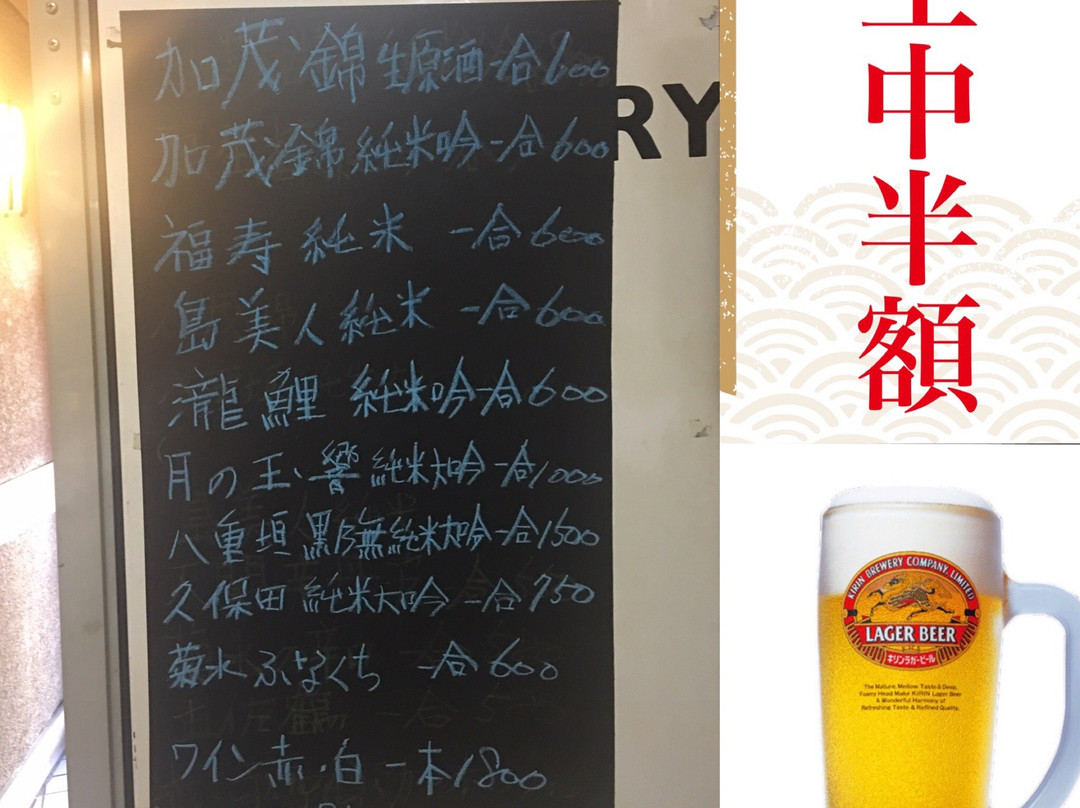 加茂錦 生原酒 一合600
加茂錦 純米吟 一合600
福寿 純米 一合600
島美人 純米 一合600
瀧鯉 純米吟 一合600
月の王・響 純米大吟 一合1000
八重垣 黒乃無 純米大吟 一合1500
久保田 純米大吟 一合750
菊水 ふなぐち 一合600
ワイン 赤・白 一本1800
RY
中半額
KIRIN BREWERY COMPANY, LIMITED
LAGER BEER
キリンラガービール
The Mature, Mellow Taste & Deep,
Foamy Head Make KIRIN Lager Beer
A Wonderful Harmony of
Refreshing Taste & Refined Quality.